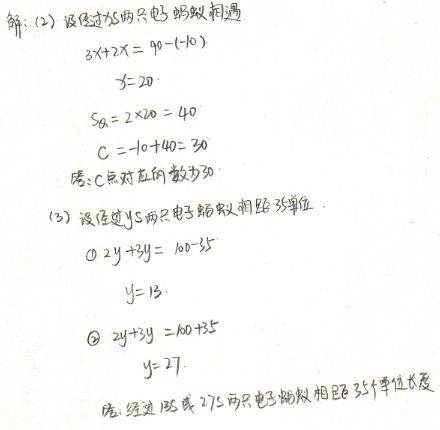 解：(2) 设经过xs两只电子蚂蚁相遇
3x+2x = 90-(-10)
x=20.
SQ = 2×20 = 40
C = -10+40 = 30
答：C点对应的数为30.
(3) 设经过ys两只电子蚂蚁相距35单位.
① 2y+3y = 100-35
y=13.
② 2y+3y = 100+35
y=27.
答：经过13s或27s两只电子蚂蚁相距35个单位长度